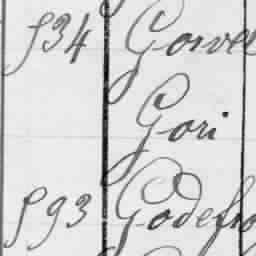 534 Gorvel
Gori
593 Godefro